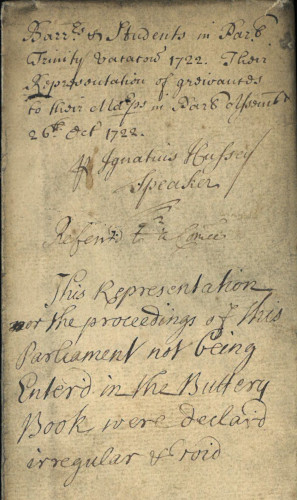 Barrrs & Students in Parlt
Trinity Vacacon 1722. Their
Representation of grievances
to their Maspps in Parlt Assembld
26th Oct 1722.
p Ignatius Hussey
Speaker
Referrd to a Comee
This Representation
nor the proceedings of this
Parliament not being
Enterd in the Buttery
Book, were declard
irregular & void